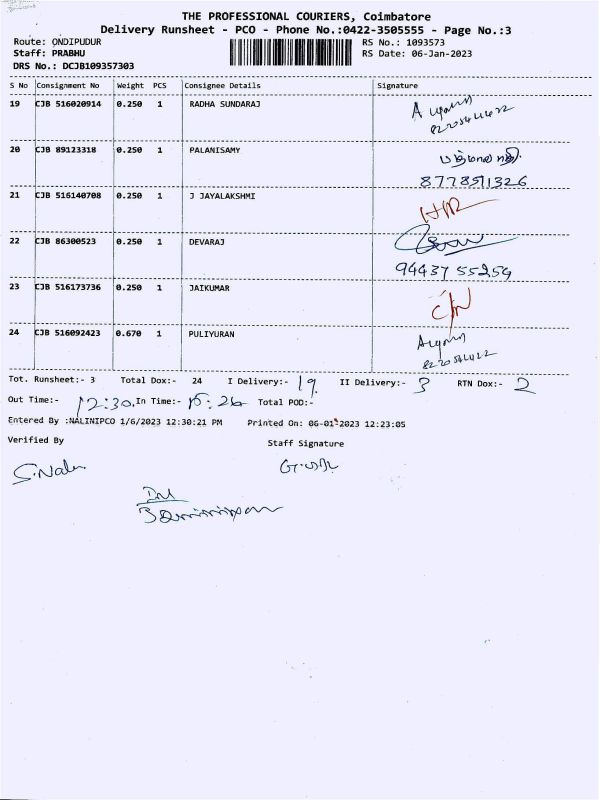 THE PROFESSIONAL COURIERS, Coimbatore
Delivery Runsheet - PCO - Phone No.:0422-3505555 - Page No.:3
Route: ONDIPUDUR RS No.: 1093573
Staff: PRABHU RS Date: 06-Jan-2023
DRS No.: DCJB109357303
S No Consignment No Weight PCS Consignee Details Signature
19 CJB 516020914 0.250 1 RADHA SUNDARAJ
20 CJB 89123318 0.250 1 PALANISAMY
8778511326
21 CJB 516140708 0.250 1 J JAYALAKSHMI
22 CJB 86300523 0.250 1 DEVARAJ
94437 55254
23 CJB 516173736 0.250 1 JAIKUMAR
24 CJB 516092423 0.670 1 PULIYURAN
Tot. Runsheet:- 3 Total Dox:- 24 I Delivery:- 19 II Delivery:- 3 RTN Dox:- 2
Out Time:- 12:30 In Time:- 15:26 Total POD:-
Entered By :NALINIPCO 1/6/2023 12:30:21 PM Printed On: 06-01-2023 12:23:05
Verified By Staff Signature